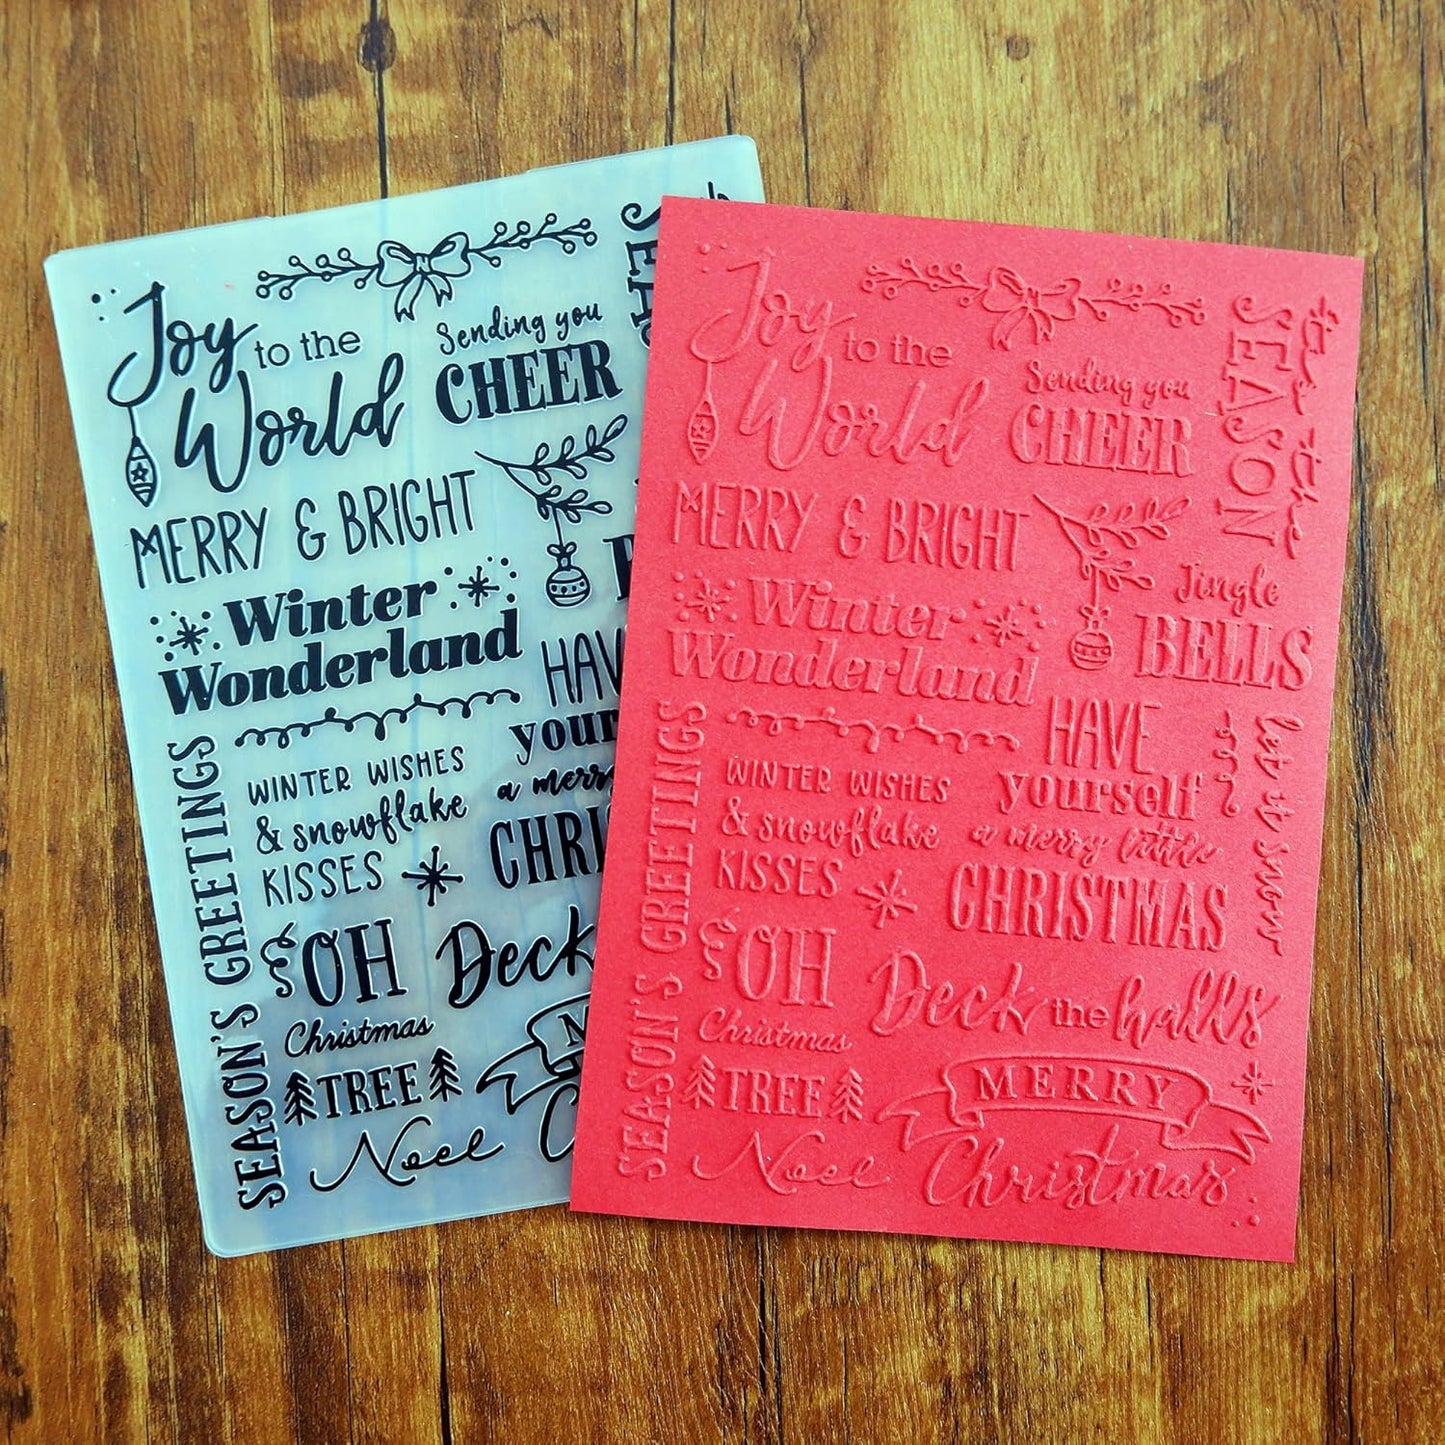 Joy
to the
World
Sending you
CHEER
SEAS
MERRY & BRIGHT
Winter
Wonderland
HAV
your
a merry
CHRIS
WINTER WISHES
& snowflake
KISSES
SEASON'S GREETINGS
OH
Christmas
TREE
Deck
Noel
Joy
to the
World
Sending you
CHEER
tis the
SEASON
MERRY & BRIGHT
Jingle
BELLS
Winter
Wonderland
HAVE
yourself
a merry little
CHRISTMAS
let it snow
WINTER WISHES
& snowflake
KISSES
SEASON'S GREETINGS
OH
Christmas
TREE
Deck the halls
MERRY
Christmas
Noel